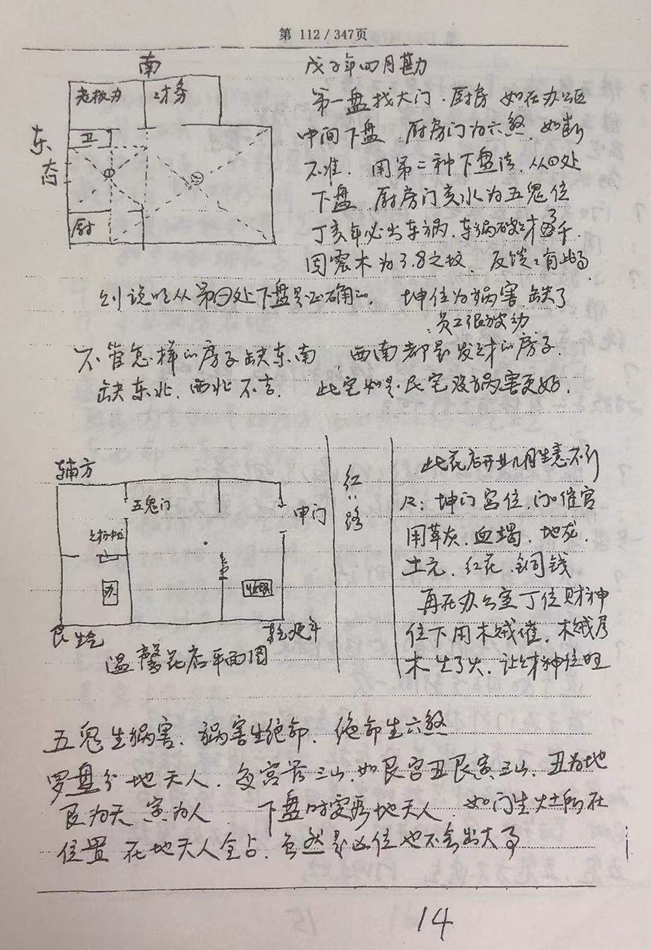 第 112 / 347页
南
戊子年四月勘
老板办
财务
第一盘找大门、厨房 如在办公区
东
卫
中间下盘 厨房门为六煞 如断
不准 用第二种下盘法，从 处
下盘 厨房门亥水为五鬼位
厨
丁亥年必出车祸，车祸破财
因震木为3.8之故 反馈
则说明从第 处下盘是正确的。 坤位为祸害 缺了
员工很波动
不管怎样的房子缺东南 西南都是发财的房子
缺东北、西北不吉。 此宅如是民宅没祸害更好。
辅方
五鬼门
申门
红 路
此花店开业几月生意不行
坤门宫位，门 催宫
用草灰、血竭、地龙、
土元、红花、铜钱
办
收银
再在办公室丁位财神
位下用木贼催，木贼属
艮 生气
延年
木生了火，让财神位旺
温馨花店平面图
五鬼生祸害、祸害生绝命、绝命生六煞
罗盘分地天人，每宫管三山，如艮宫丑艮寅三山，丑为地
艮为天 寅为人 下盘时要看地天人 如门主灶所在
位置 在地天人全占，虽然是凶位也不会出大事
14